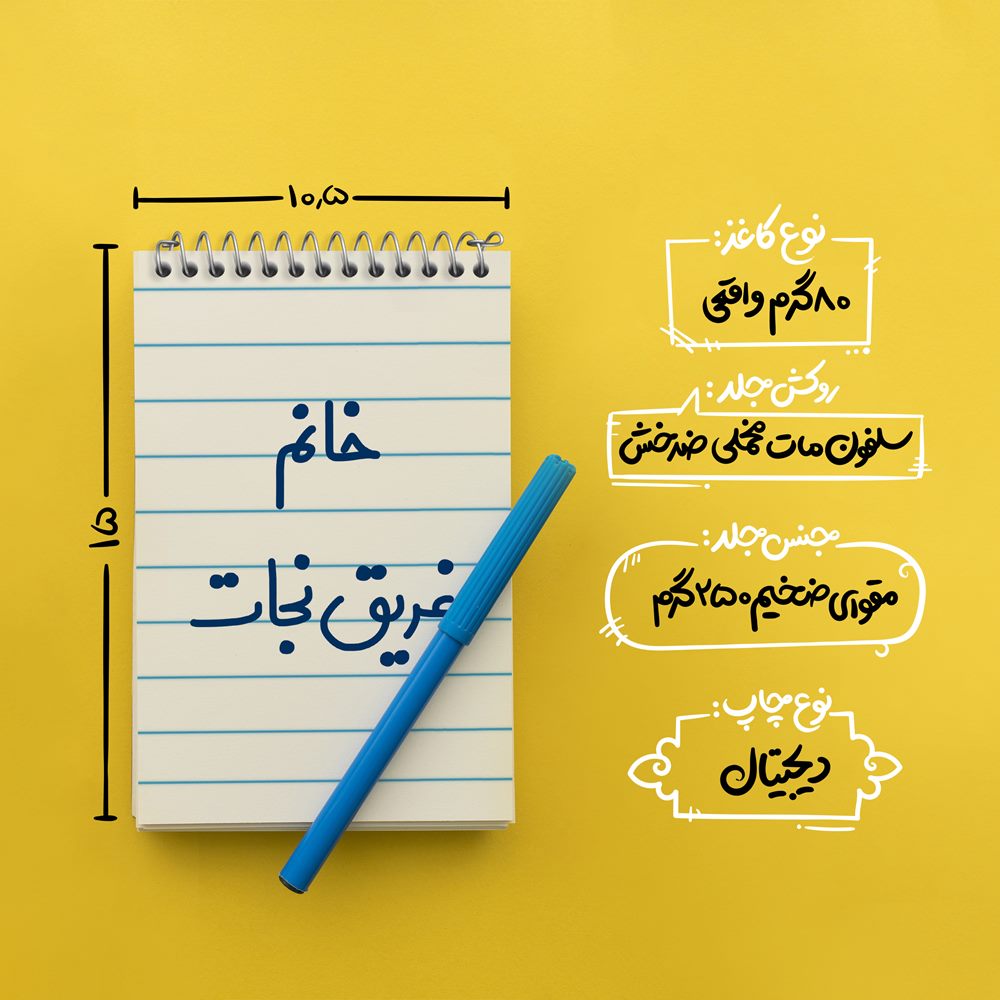 ۱۰٫۵
۱۵
خانم
غریق نجات
نوع کاغذ:
۸۰ گرم واقعی
روکش جلد:
سلفون مات مخملی ضدخش
جنس جلد:
مقوای ضخیم ۲۵۰ گرم
نوع چاپ:
دیجیتال